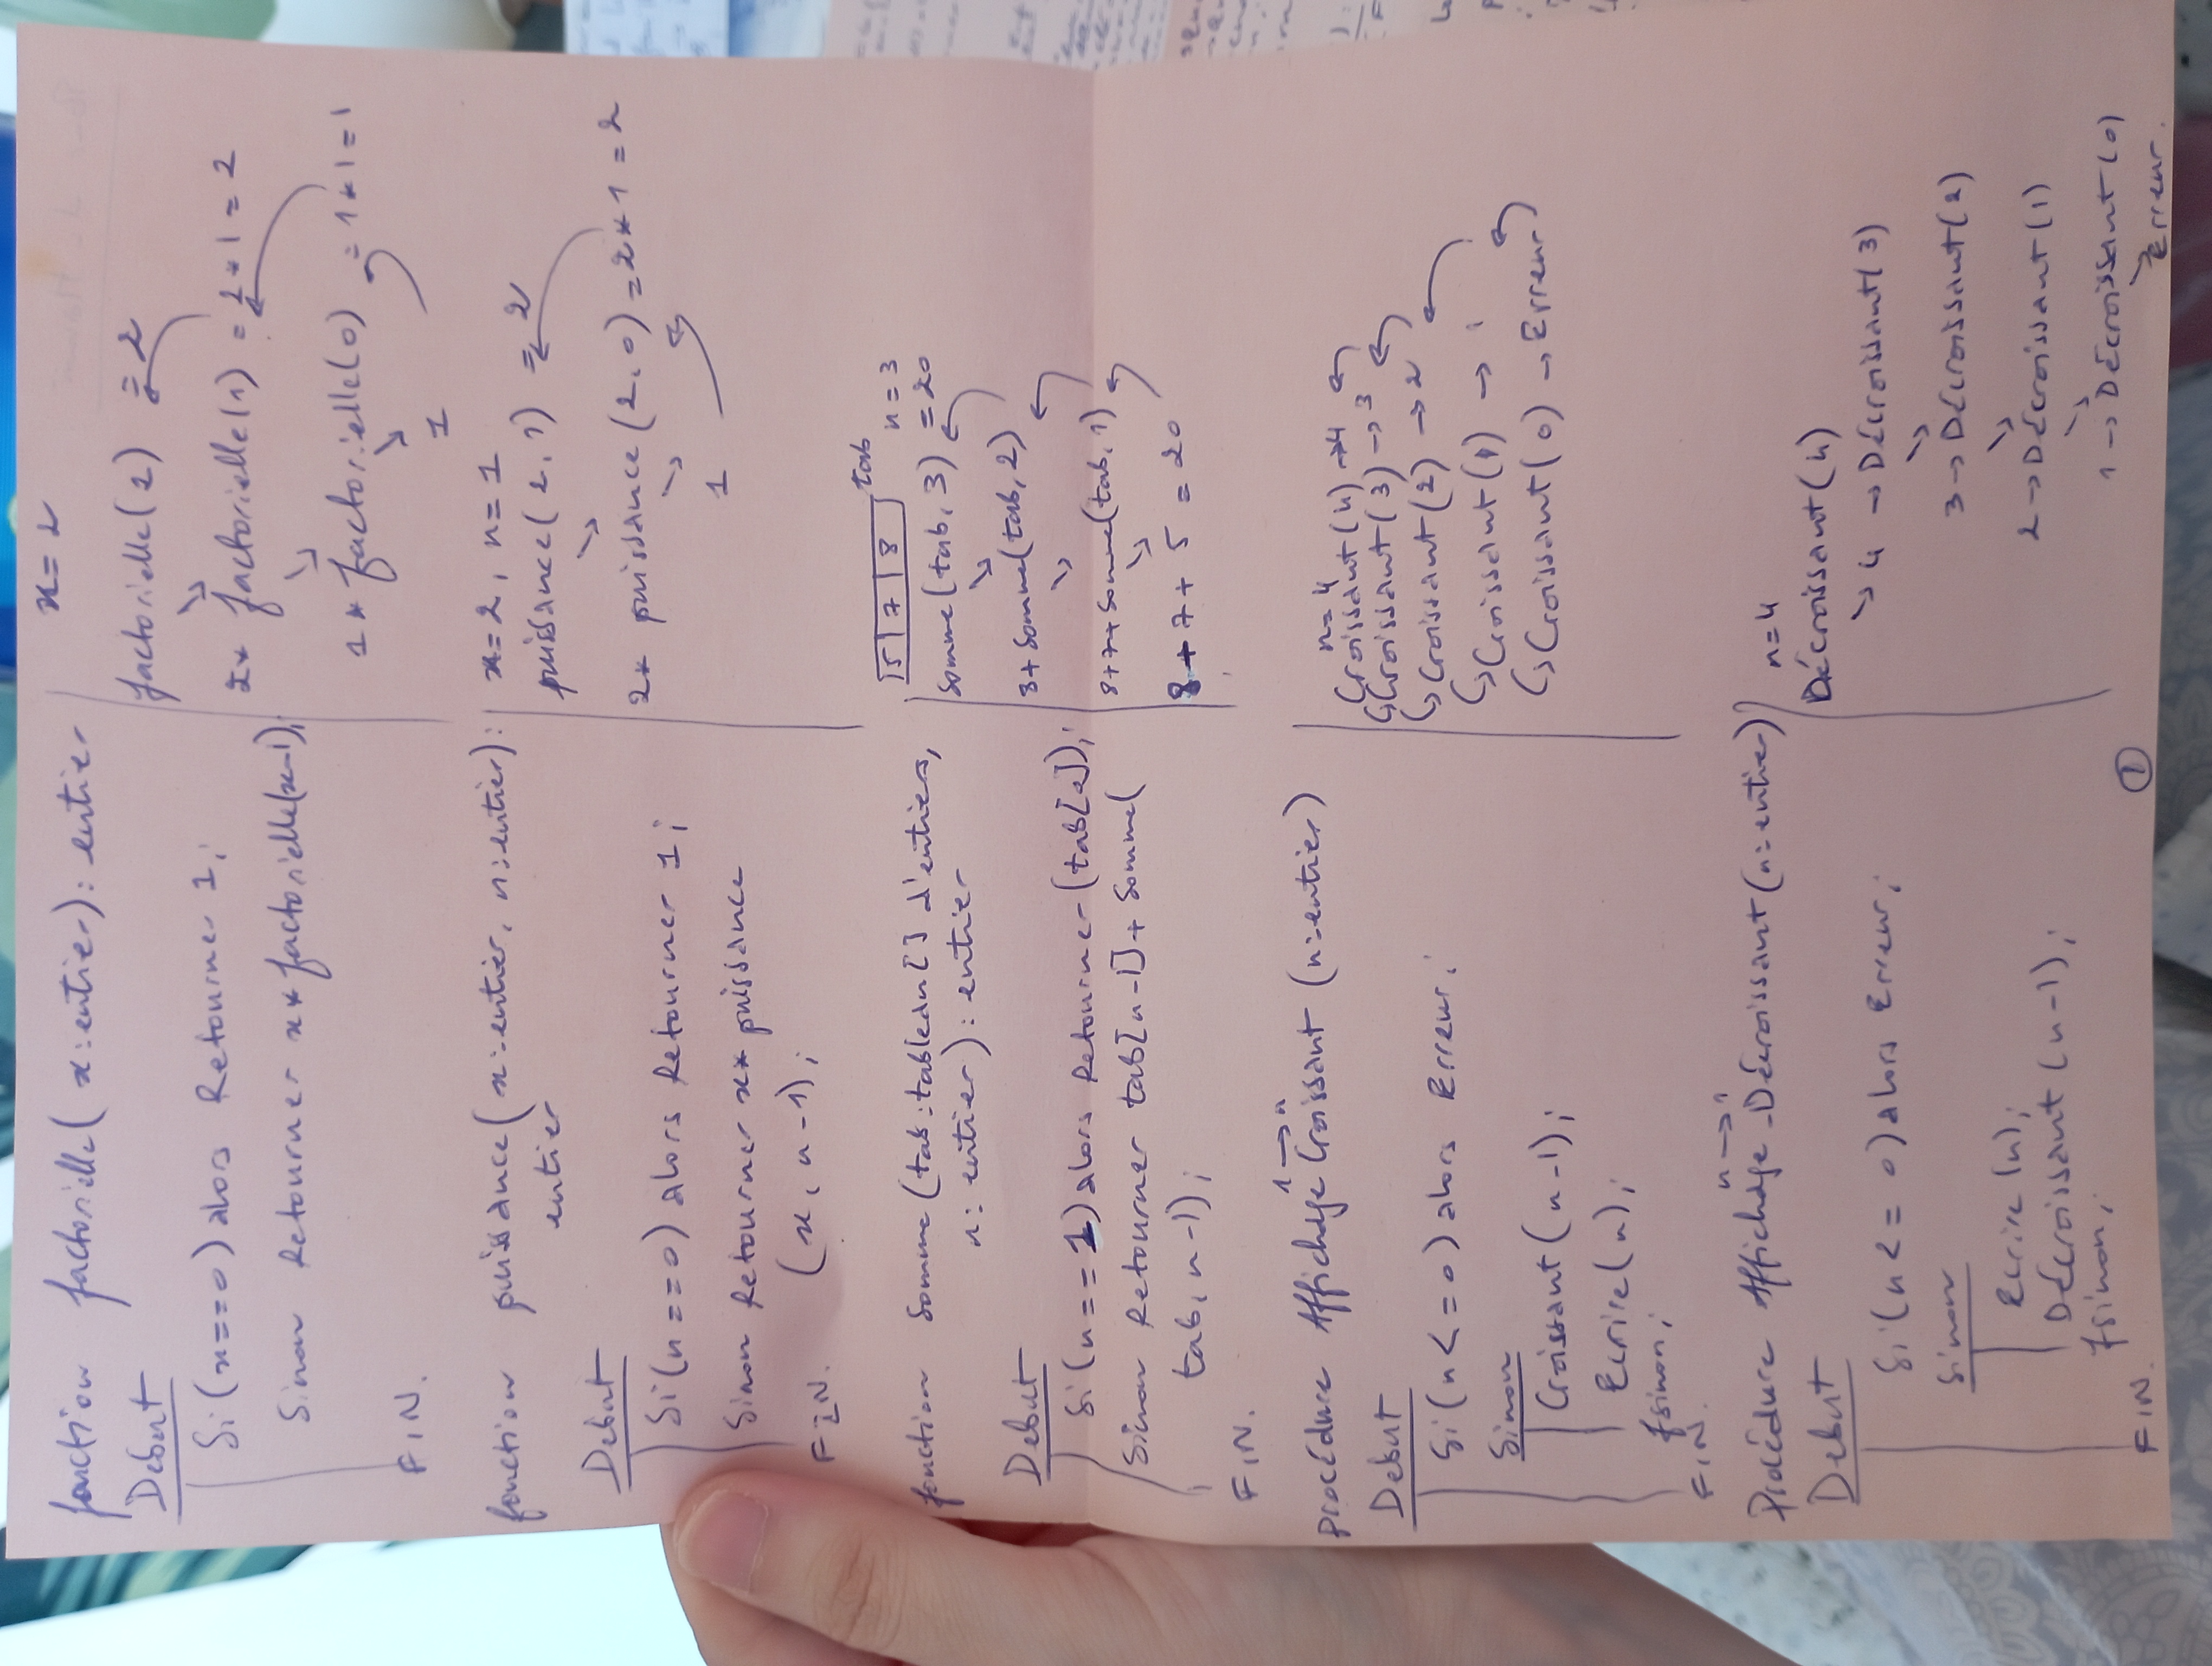 fonction factorielle( x:entier): entier
Debut
Si(x==0) alors Retourner 1;
Sinon Retourner x*factorielle(x-1);
FIN.
x=2
factorielle(2) =2
↘
2* factorielle(1) = 2*1=2
↘
1* factorielle(0) =1*1=1
↘
1
fonction puissance( x:entier, n:entier):
entier
Debut
Si(n==0) alors Retourner 1;
Sinon Retourner x* puissance
(x, n-1);
FIN.
x=2, n=1
puissance(2,1) =2
↘
2* puissance(2,0)=2*1=2
↘
1
fonction Somme(tab:tableau[] d'entiers,
n: entier): entier
Debut
Si(n==1) alors Retourner(tab[0]);
Sinon Retourner tab[n-1]+ Somme(
tab, n-1);
FIN.
5 7 8 tab
n=3
Somme(tab,3) =20
↘
8+Somme(tab,2)
↘
8+7+Somme(tab,1)
↘
8+7+5 =20
1→n
procédure Affichage Croissant (n:entier)
Debut
Si(n<=0) alors Erreur;
Sinon
Croissant(n-1);
Ecrire(n);
fsinon;
FIN.
n=4
Croissant(4)→4
↳Croissant(3)→3
↳Croissant(2)→2
↳Croissant(1)→1
↳Croissant(0)→Erreur
n→1
Procédure Affichage_Décroissant(n:entier)
Debut
Si(n<=0) alors Erreur;
Sinon
Ecrire(n);
Décroissant(n-1);
fsinon;
FIN.
n=4
Décroissant(4)
↘ 4 →Décroissant(3)
↘
3→Décroissant(2)
↘
2→Décroissant(1)
↘
1→Décroissant(0)
↘Erreur.
①